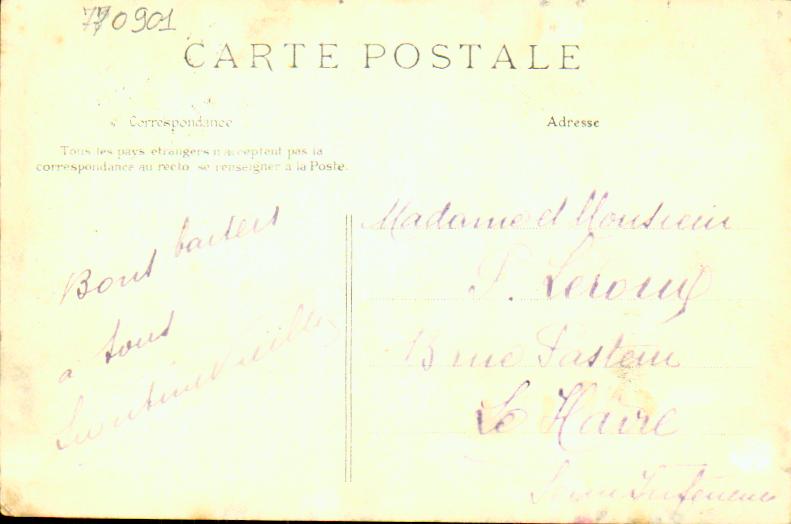 770901
CARTE POSTALE
Correspondance
Tous les pays étrangers n'acceptent pas la
correspondance au recto, se renseigner à la Poste.
Bons baisers
a tous
Adresse
Madame et Monsieur
P. Leroux
13 rue Pasteur
Le Havre
Seine Inférieure